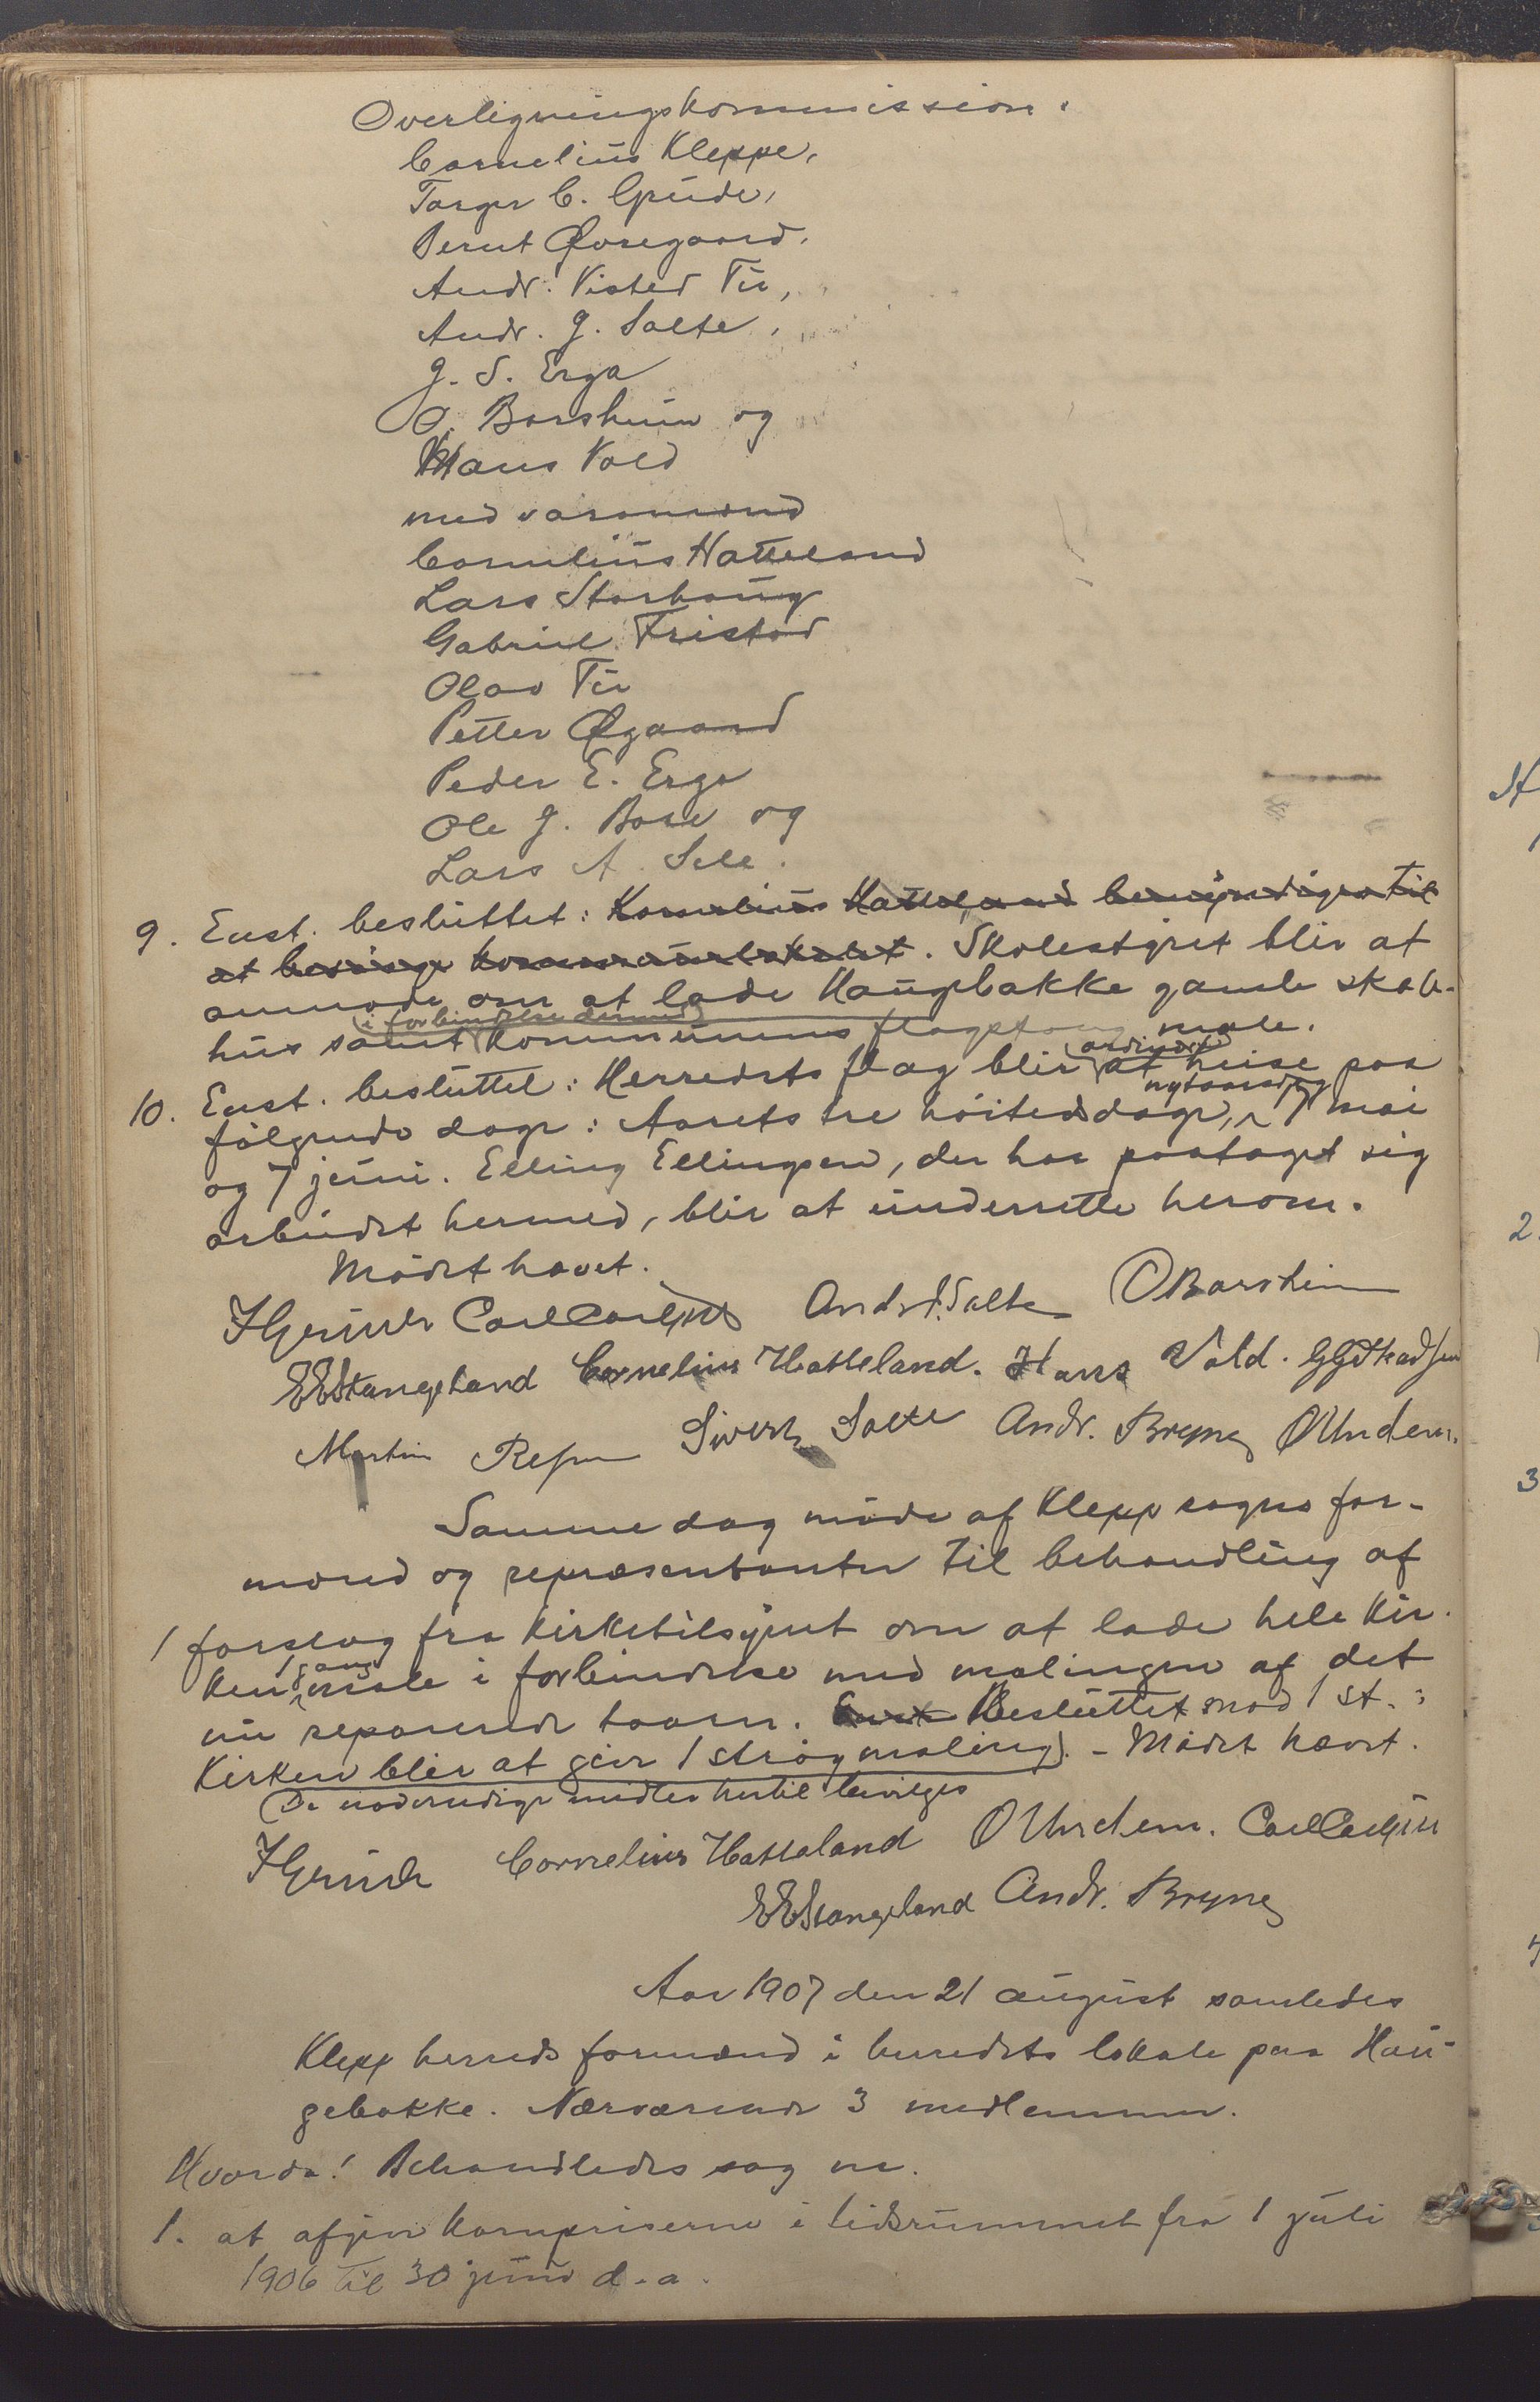 Overligningskommission:
Cornelius Kleppe,
Torger C. Grude,
Bernt Øvregaard,
Andr. Visted Tu,
Andr. G. Salte,
G. S. Erga
O. Borsheim og
Hans Vold
med varamænd
Cornelius Hatteland
Lars Storhaug
Gabriel Friestad
Olav Tu
Petter Øgaard
Peder E. Erga
Ole G. Bore og
Lars A. Sele.
9. Enst. besluttet: Kornelius Hatteland bemyndiges til
at besørge kommunelokalet. Skolestyret blir at
anmode om at lade Haugebakke gamle skole-
hus samt (i forbindelse dermed) kommunens flagstang male.
10. Enst. besluttet: Herredets flag blir (ordinært) at heise paa
følgende dage: Aarets tre høitidsdage, nytaarsdag, 17 mai
og 7 juni. Elling Ellingsen, der har paataget sig
arbeidet hermed, blir at underrette herom.
Mødet hævet.
HGrude Carl Carlsen Andr. G. Salte O Borsheim
EEStangeland Cornelius Hatteland. Hans Vold.
Martin Sivert Salte Andr. Bryne O Undem.
Samme dag møde af Klepp sogns for-
mænd og repræsentanter til behandling af
1 forslag fra kirketilsynet om at lade hele kir-
ken 1 gang male i forbindelse med malingen af det
nu reparerede taarn. Enst. Besluttet mod 1 st.:
Kirken blir at give 1 strøg maling. - Mødet hævet.
(De nødvendige midler hertil bevilges
HGrude Cornelius Hatteland O Undem. Carl Carlsen
EEStangeland Andr. Bryne
Aar 1907 den 21 august samledes
Klepp herreds formænd i herredets lokale paa Hau-
gebakke. Nærværende 3 medlemmer.
Hvorda! Behandledes sag nr.
1. at afgive kornpriserne i tidsrummet fra 1 juli
1906 til 30 juni d. a.